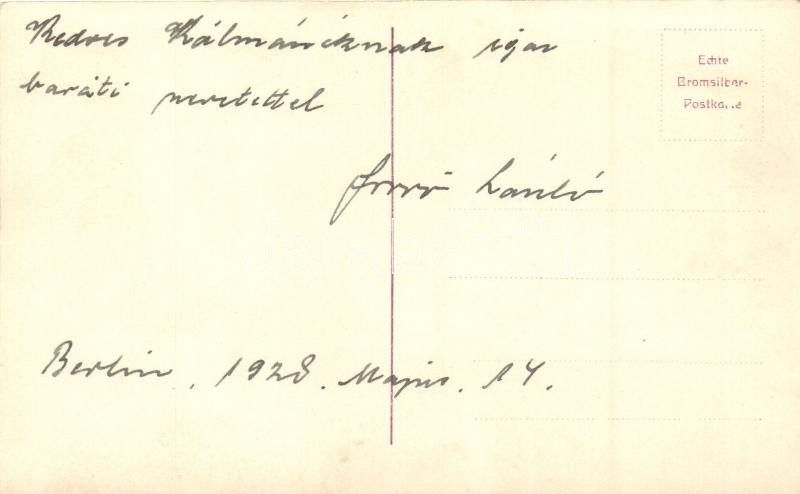 Kedves Kálmánéknak igaz
baráti szeretettel
László
Berlin, 1928. Május. 14.
Echte
Bromsilber-
Postkarte